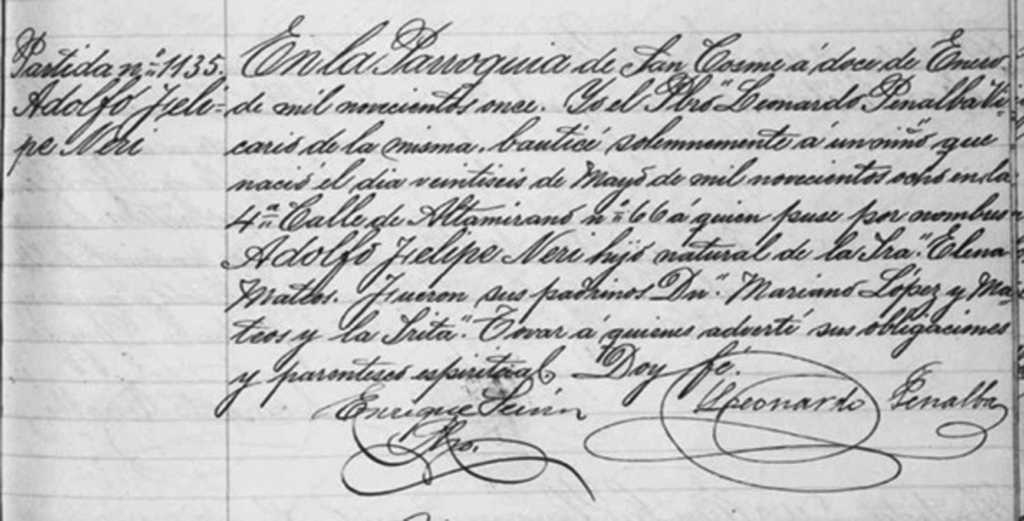 Partida n.º 1135.
Adolfo Feli-
pe Neri
En la Parroquia de San Cosme á doce de Enero
de mil novecientos once. Yo el Pbro Leonardo Penalba Vi
cario de la misma, bauticé solemnemente á un niño que
nació el dia veintiseis de Mayo de mil novecientos ocho en la
4.ª Calle de Altamirano n.º 66 á quien puse por nombre
Adolfo Felipe Neri hijo natural de la Sra. Elena
Mateos. Fueron sus padrinos Dn. Mariano López y Ma
teos y la Srita. Tovar á quienes advertí sus obligaciones
y parentesco espiritual. Doy fé.
Enrique Leonardo Penalba
Pbro.